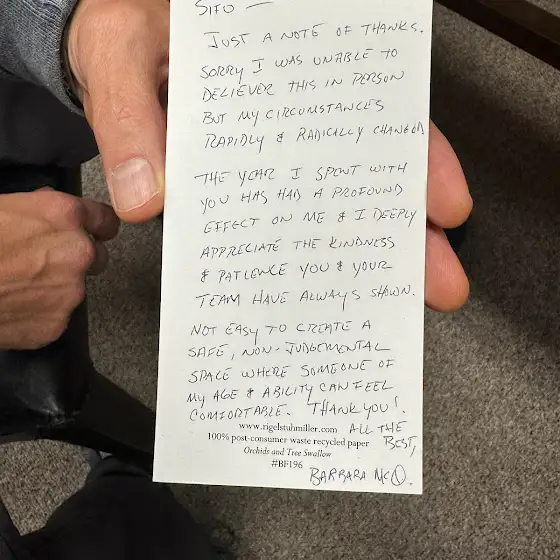 SIFU —
JUST A NOTE OF THANKS.
SORRY I WAS UNABLE TO
DELIEVER THIS IN PERSON
BUT MY CIRCUMSTANCES
RAPIDLY & RADICALLY CHANGED
THE YEAR I SPENT WITH
YOU HAS HAD A PROFOUND
EFFECT ON ME & I DEEPLY
APPRECIATE THE KINDNESS
& PATIENCE YOU & YOUR
TEAM HAVE ALWAYS SHOWN.
NOT EASY TO CREATE A
SAFE, NON-JUDGEMENTAL
SPACE WHERE SOMEONE OF
MY AGE & ABILITY CAN FEEL
COMFORTABLE. THANK YOU!
ALL THE
BEST,
www.rigelstuhmiller.com
100% post-consumer waste recycled paper
Orchids and Tree Swallow
#BF196
BARBARA McD.